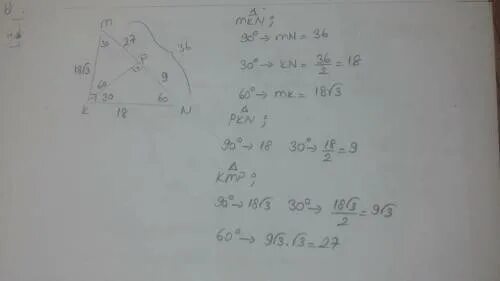 8.
M
30
27
36
P
18√3
9
60
30
60
K
18
N
△
MKN;
90° → MN = 36
30° → KN = 36/2 = 18
60° → MK = 18√3
△
PKN;
90° → 18 30° → 18/2 = 9
△
KMP;
90° → 18√3 30° → 18√3/2 = 9√3
60° → 9√3.√3 = 27